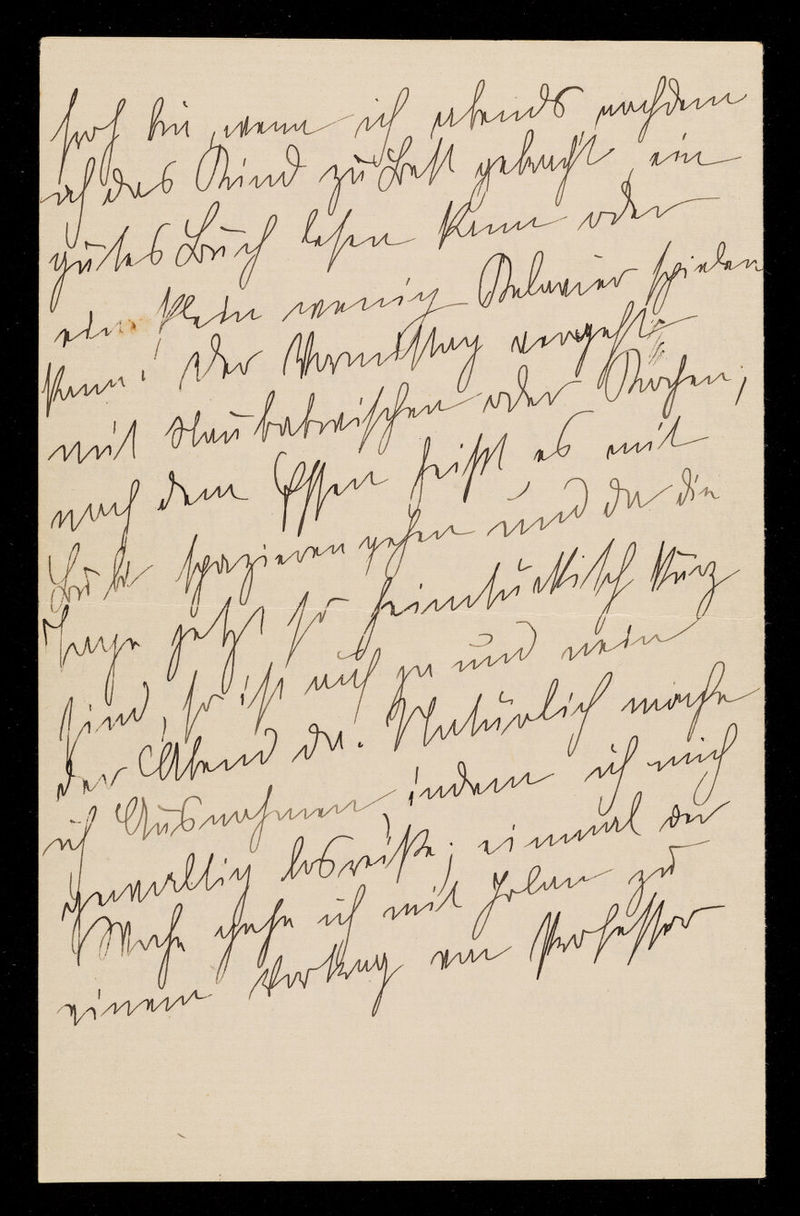 froh bin, wenn ich abends nachdem
ich das Kind zu Bett gebracht, ein
gutes Buch lesen kann oder
ein klein wenig Klavier spielen
kann. Der Vormittag vergeht
mit Staubabwischen oder Kochen,
nach dem Essen heißt es mit
Bubi spazierengehen und da die
Tage jetzt so heimtückisch kurz
sind, so ist auf ja und nein
der Abend da. Natürlich mache
ich Ausnahmen, indem ich mich
gewaltig losreiße; einmal der
Woche gehe ich mit Jolan zu
einem Vortrag von Professor